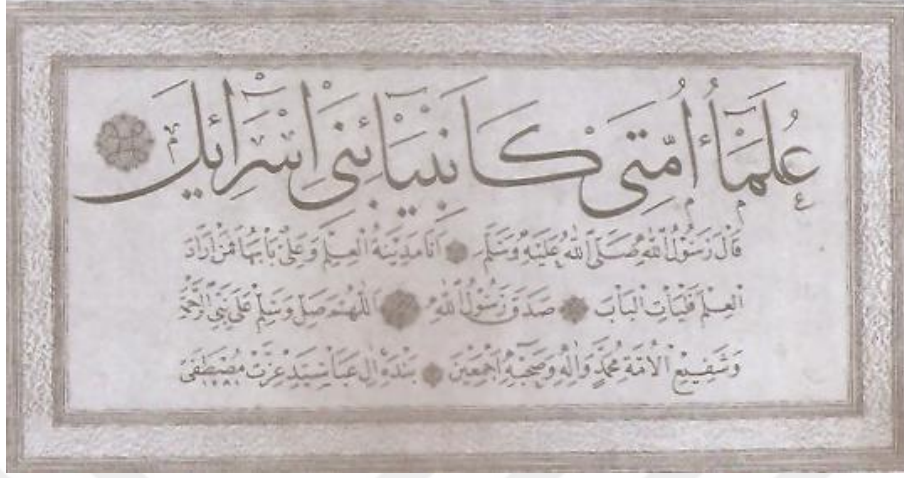 عُلَمَاءُ اُمَّتِى كَاَنْبِيَآئِ بَنِى اِسْرَآئِلَ
قَالَ رَسُولُ اللّٰهِ صَلَّى اللّٰهُ عَلَيْهِ وَسَلَّمَ اَنَا مَدِينَةُ الْعِلْمِ وَعَلِىٌّ بَابُهَا فَمَنْ اَرَادَ
الْعِلْمَ فَلْيَاْتِ الْبَابَ صَدَقَ رَسُولُ اللّٰهِ اَللّٰهُمَّ صَلِّ وَسَلِّمْ عَلٰى نَبِىِّ الرَّحْمَةِ
وَشَفِيعِ الْاُمَّةِ مُحَمَّدٍ وَاٰلِهِ وَصَحْبِهِ اَجْمَعِينَ بَنْدَهٔ اٰلِ عَبَا سَيِّدْ عِزَّتْ مُصْطَفٰى